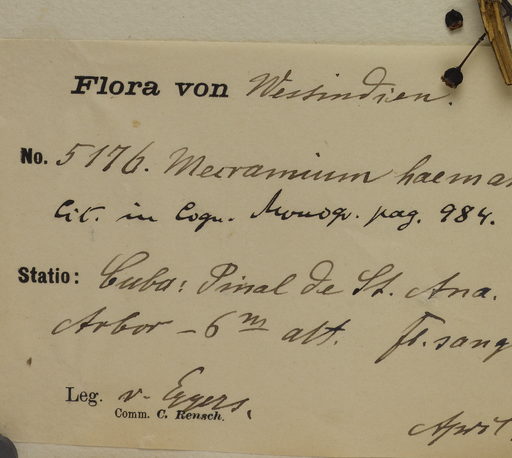 Flora von Westindien.
No. 5176. Mecranium haeman
Cit. in Cogn. Monogr. pag. 984.
Statio: Cuba: Pinal de St. Ana.
Arbor – 6 m alt. Fl. sang
Leg. v. Eggers.
Comm. C. Rensch.
April